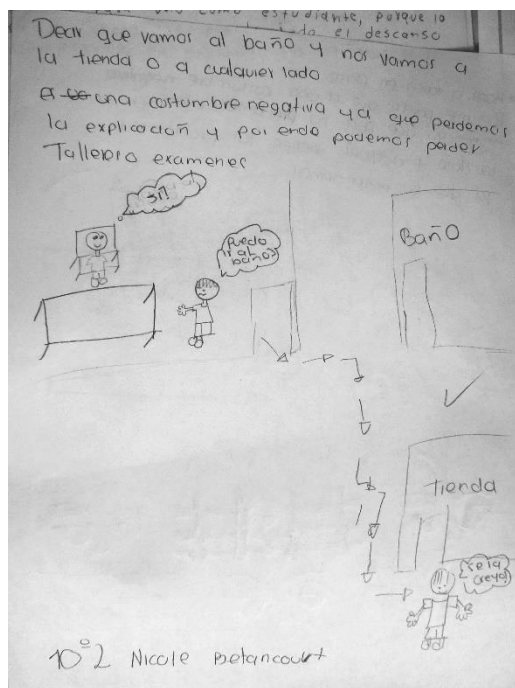 estudiante, porque lo
el descanso
Decir que vamos al baño y nos vamos a
la tienda o a cualquier lado
es una costumbre negativa ya que perdemos
la explicación y por ende podemos perder
Talleres o examenes
si!
Puedo
ir al
baño?
Baño
Tienda
se la
creyo!
10°2 Nicole Betancourt